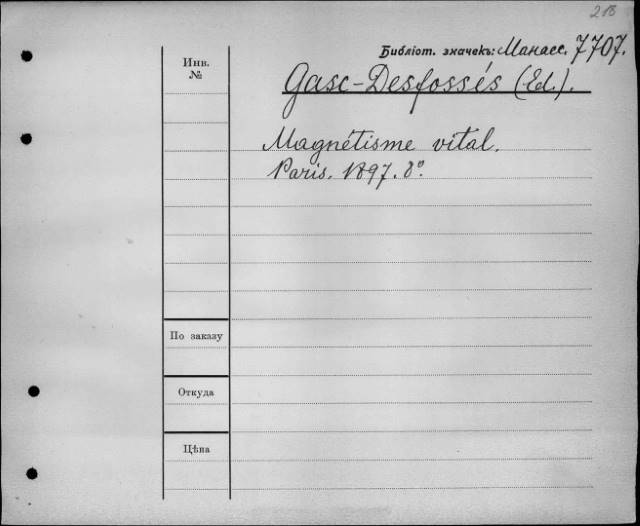 Библіот. значекъ: Манасс. 7707.
Инв.
№
Gasc-Desfossés (Ed.).
Magnétisme vital.
Paris. 1897. 8º.
По заказу
Откуда
Цѣна